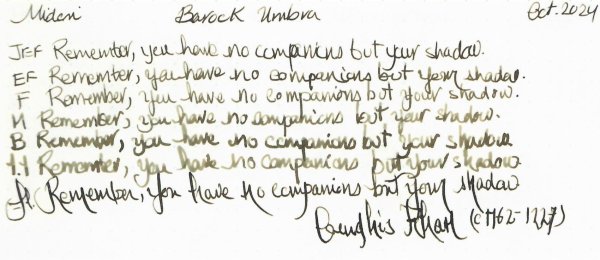 Midori Barock Umbra Oct. 2024
JEF Remember, you have no companions but your shadow.
EF Remember, you have no companions but your shadow.
F Remember, you have no companions but your shadow.
M Remember, you have no companions but your shadow.
B Remember, you have no companions but your shadow.
1.1 Remember, you have no companions but your shadow.
Remember, you have no companions but your shadow
Genghis Khan (c1162-1227)